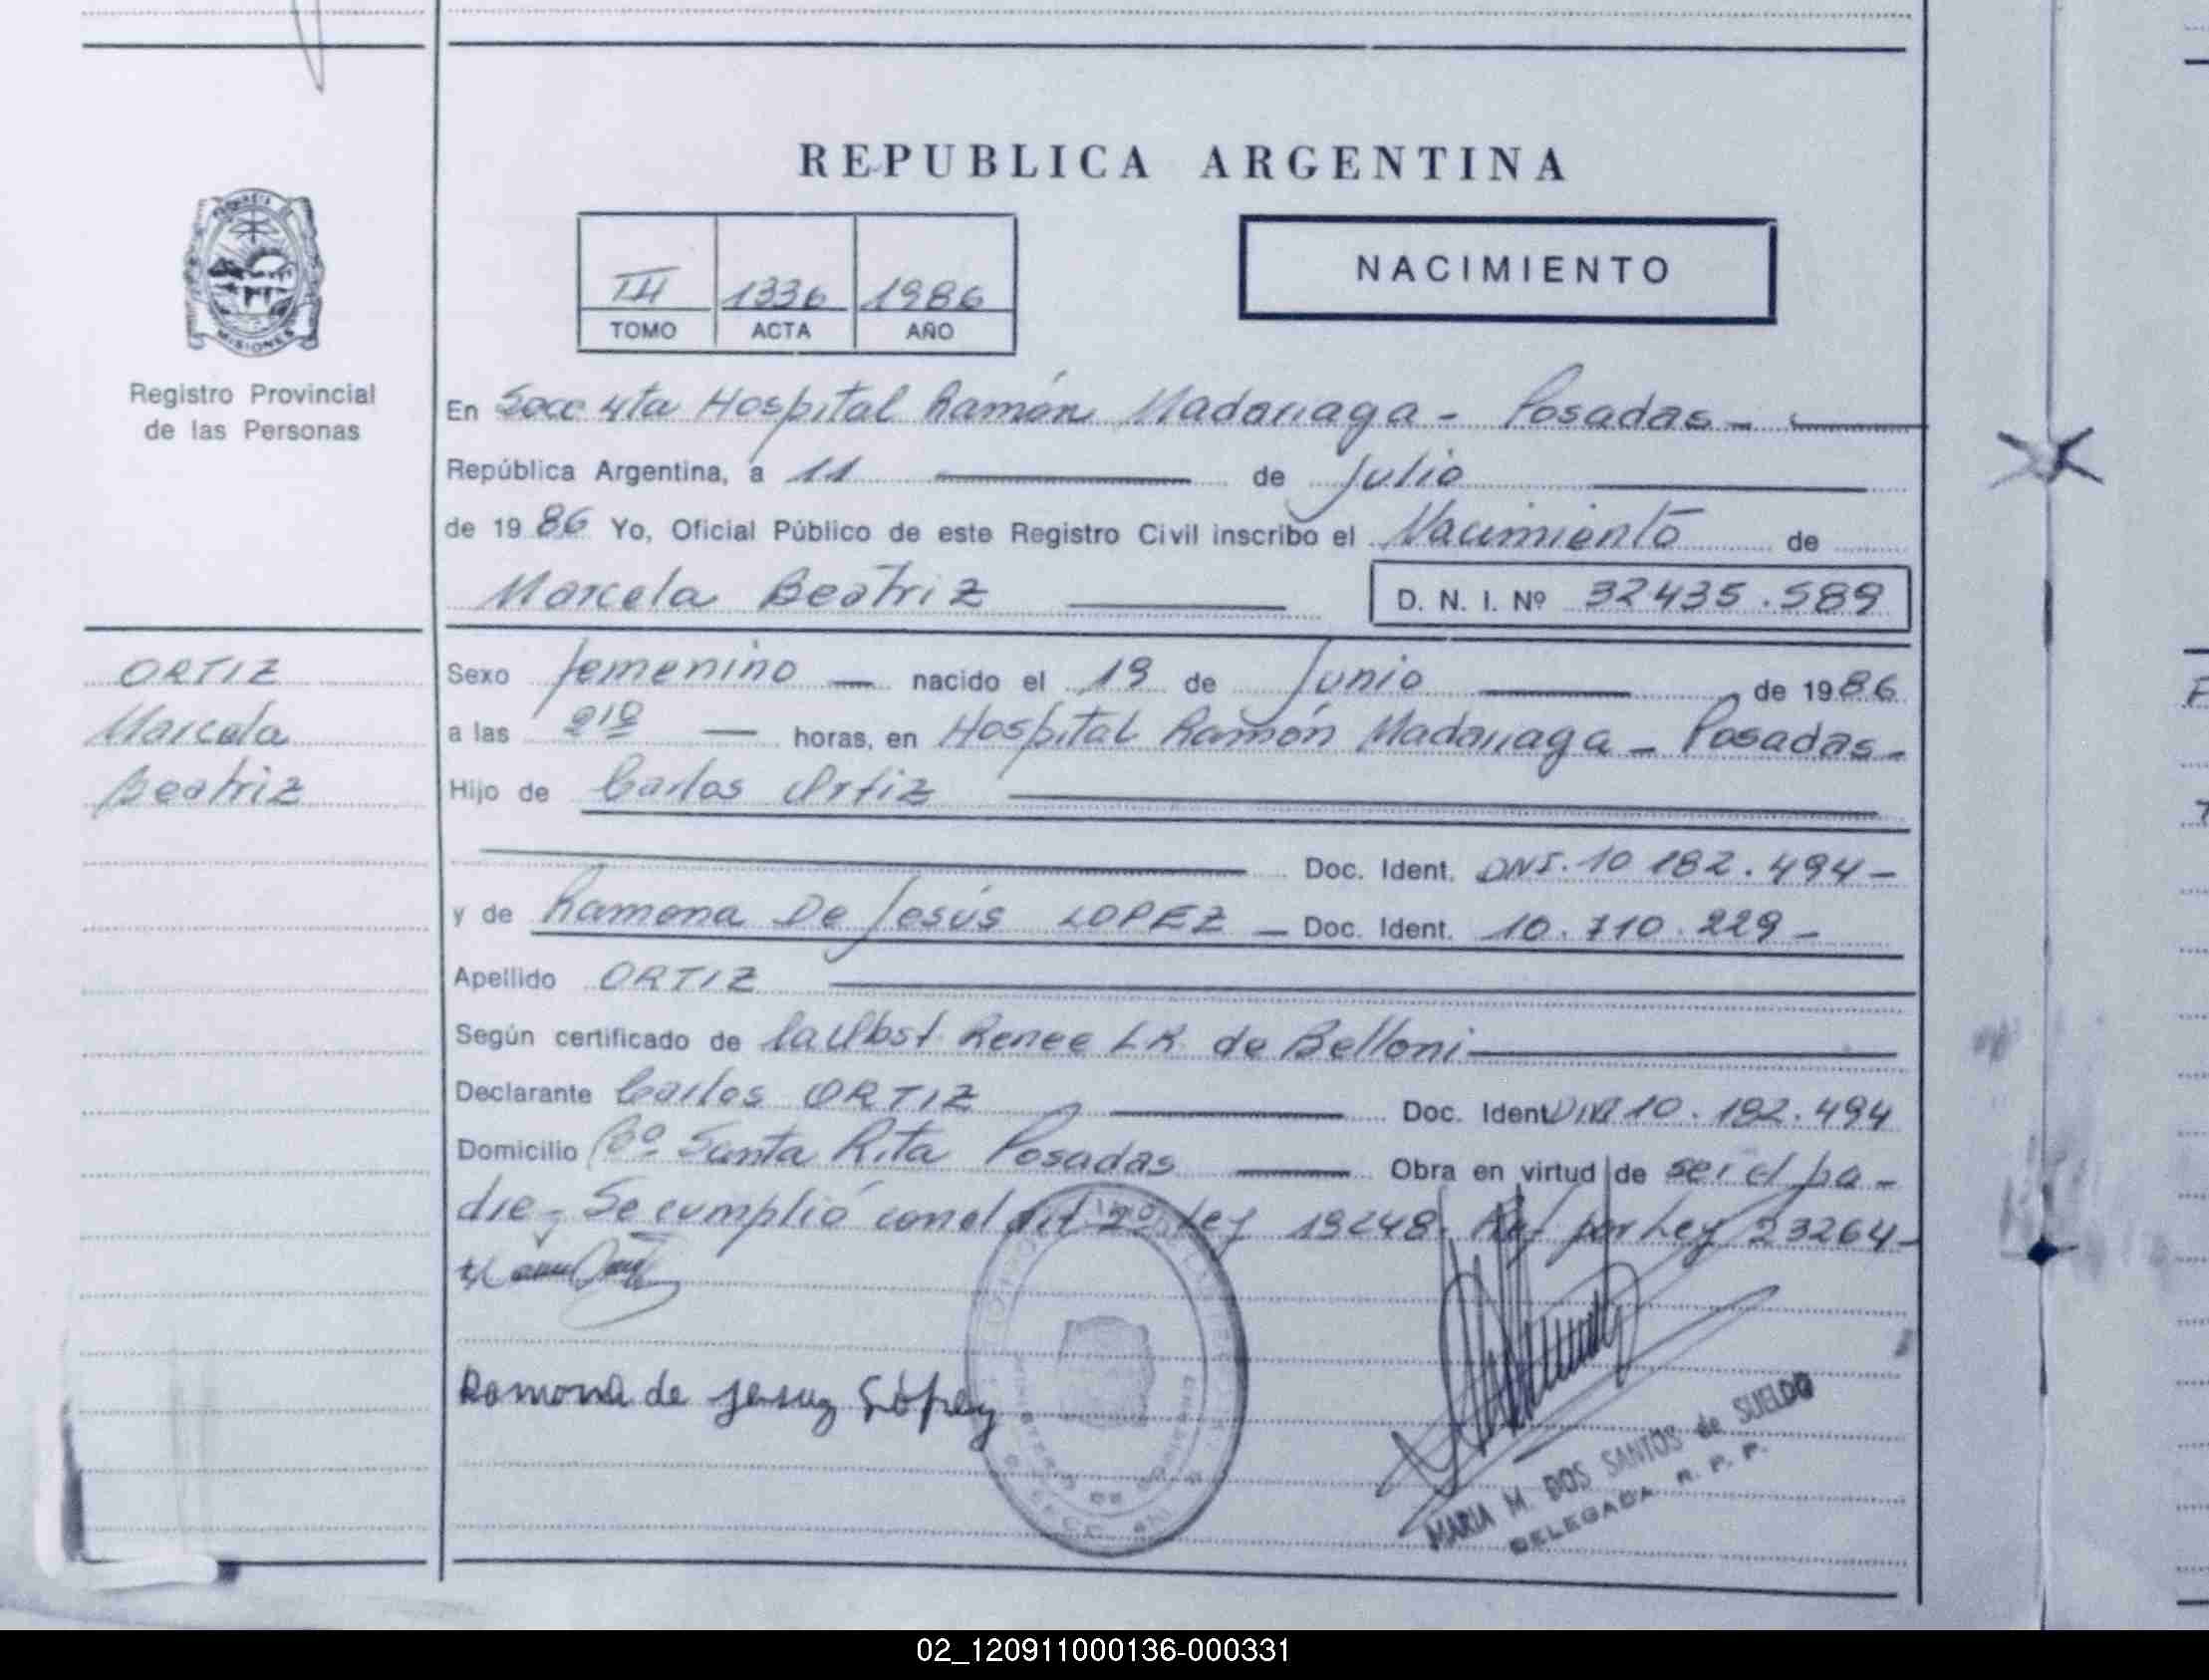 REPUBLICA ARGENTINA
PROVINCIA DE
MISIONES
Registro Provincial
de las Personas
III 1336 1986
TOMO ACTA AÑO
NACIMIENTO
En Secc 4ta Hospital Ramón Madariaga - Posadas -
República Argentina, a 11 de Julio
de 1986 Yo, Oficial Público de este Registro Civil inscribo el Nacimiento de
Marcela Beatriz D. N. I. Nº 32435.589
ORTIZ
Marcela
Beatriz
Sexo femenino nacido el 19 de Junio de 1986
a las horas, en Hospital Ramón Madariaga - Posadas -
Hijo de Carlos Ortiz
Doc. Ident. DNI. 10 182.494 -
y de Ramona De Jesús LOPEZ - Doc. Ident. 10.710.229 -
Apellido ORTIZ
Según certificado de la Obst Renee LR de Belloni
Declarante Carlos ORTIZ Doc. Ident DNI 10.192.494
Domicilio Bº Santa Rita Posadas Obra en virtud de ser el pa-
dre - Se cumplió con el art 2º Ley 19248. por Ley 23264 -
Ramona de Jesuz López
MARIA M. DOS SANTOS de SUELDO
DELEGADA R. P. P.
02_120911000136-000331